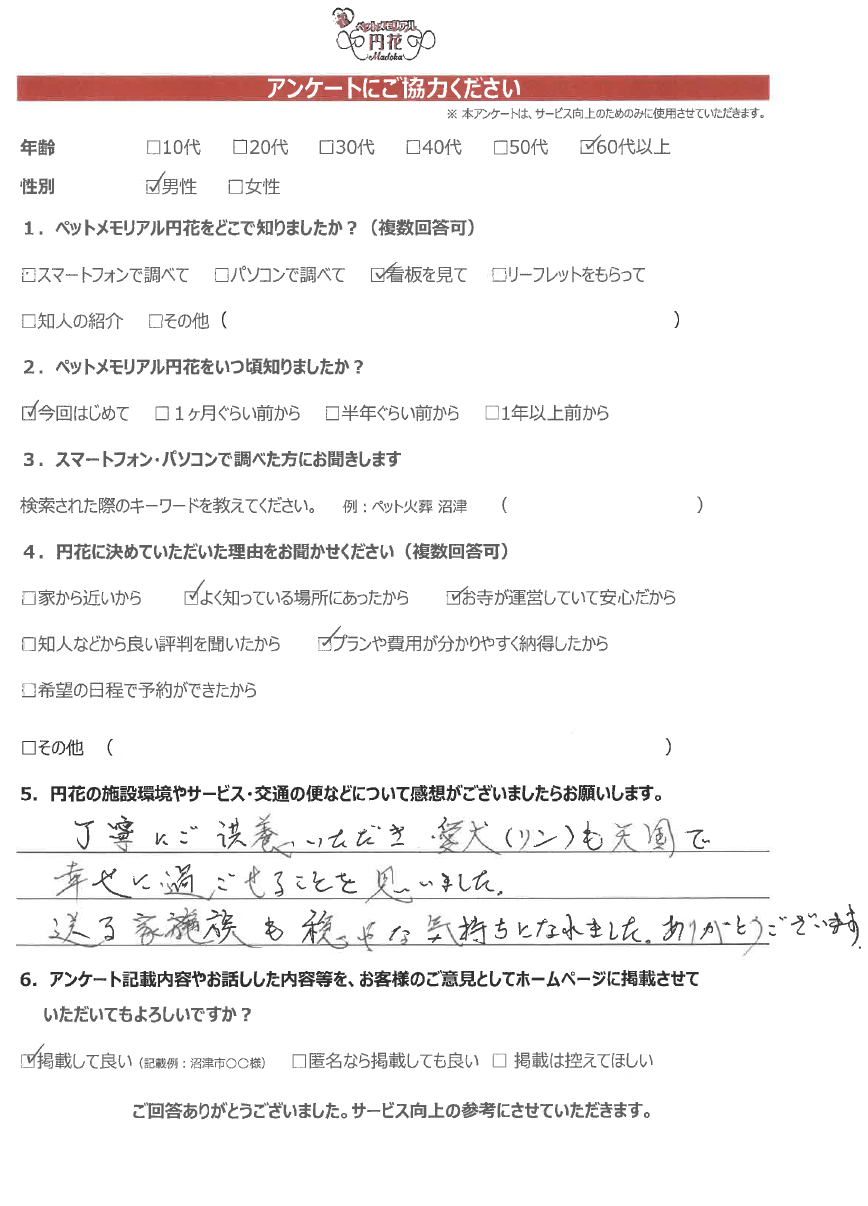 ペットメモリアル
円花
Madoka
アンケートにご協力ください
※ 本アンケートは、サービス向上のためのみに使用させていただきます。
年齢 □10代 □20代 □30代 □40代 □50代 ☑60代以上
性別 ☑男性 □女性
1．ペットメモリアル円花をどこで知りましたか？（複数回答可）
□スマートフォンで調べて □パソコンで調べて ☑看板を見て □リーフレットをもらって
□知人の紹介 □その他（ ）
2．ペットメモリアル円花をいつ頃知りましたか？
☑今回はじめて □１ヶ月ぐらい前から □半年ぐらい前から □1年以上前から
3．スマートフォン・パソコンで調べた方にお聞きします
検索された際のキーワードを教えてください。 例：ペット火葬 沼津 （ ）
4．円花に決めていただいた理由をお聞かせください（複数回答可）
□家から近いから ☑よく知っている場所にあったから ☑お寺が運営していて安心だから
□知人などから良い評判を聞いたから ☑プランや費用が分かりやすく納得したから
□希望の日程で予約ができたから
□その他 （ ）
5．円花の施設環境やサービス・交通の便などについて感想がございましたらお願いします。
丁寧にご供養いただき 愛犬（リン）も天国で
幸せに過ごせることを思いました。
送る家族も穏やかな気持ちになれました。ありがとうございます。
6．アンケート記載内容やお話しした内容等を、お客様のご意見としてホームページに掲載させて
いただいてもよろしいですか？
☑掲載して良い（記載例：沼津市〇〇様） □匿名なら掲載しても良い □ 掲載は控えてほしい
ご回答ありがとうございました。サービス向上の参考にさせていただきます。